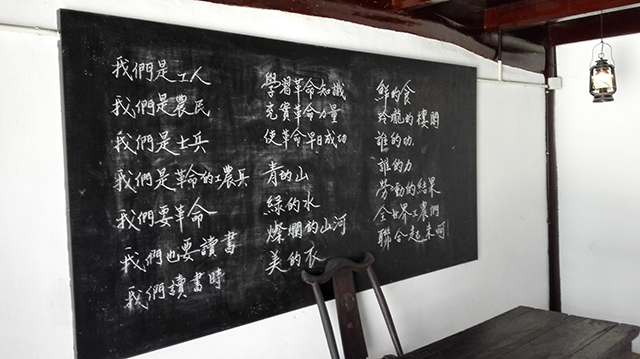 我們是工人
我們是農民
我們是士兵
我們是革命的工農兵
我們要革命
我們也要讀書
我們讀書時
學習革命知識
充實革命力量
使革命早日成功
青的山
綠的水
燦爛的山河
美的衣
鮮的食
玲瓏的樓閣
誰的功
誰的力
勞動的結果
全世界工農們
聯合起來啊